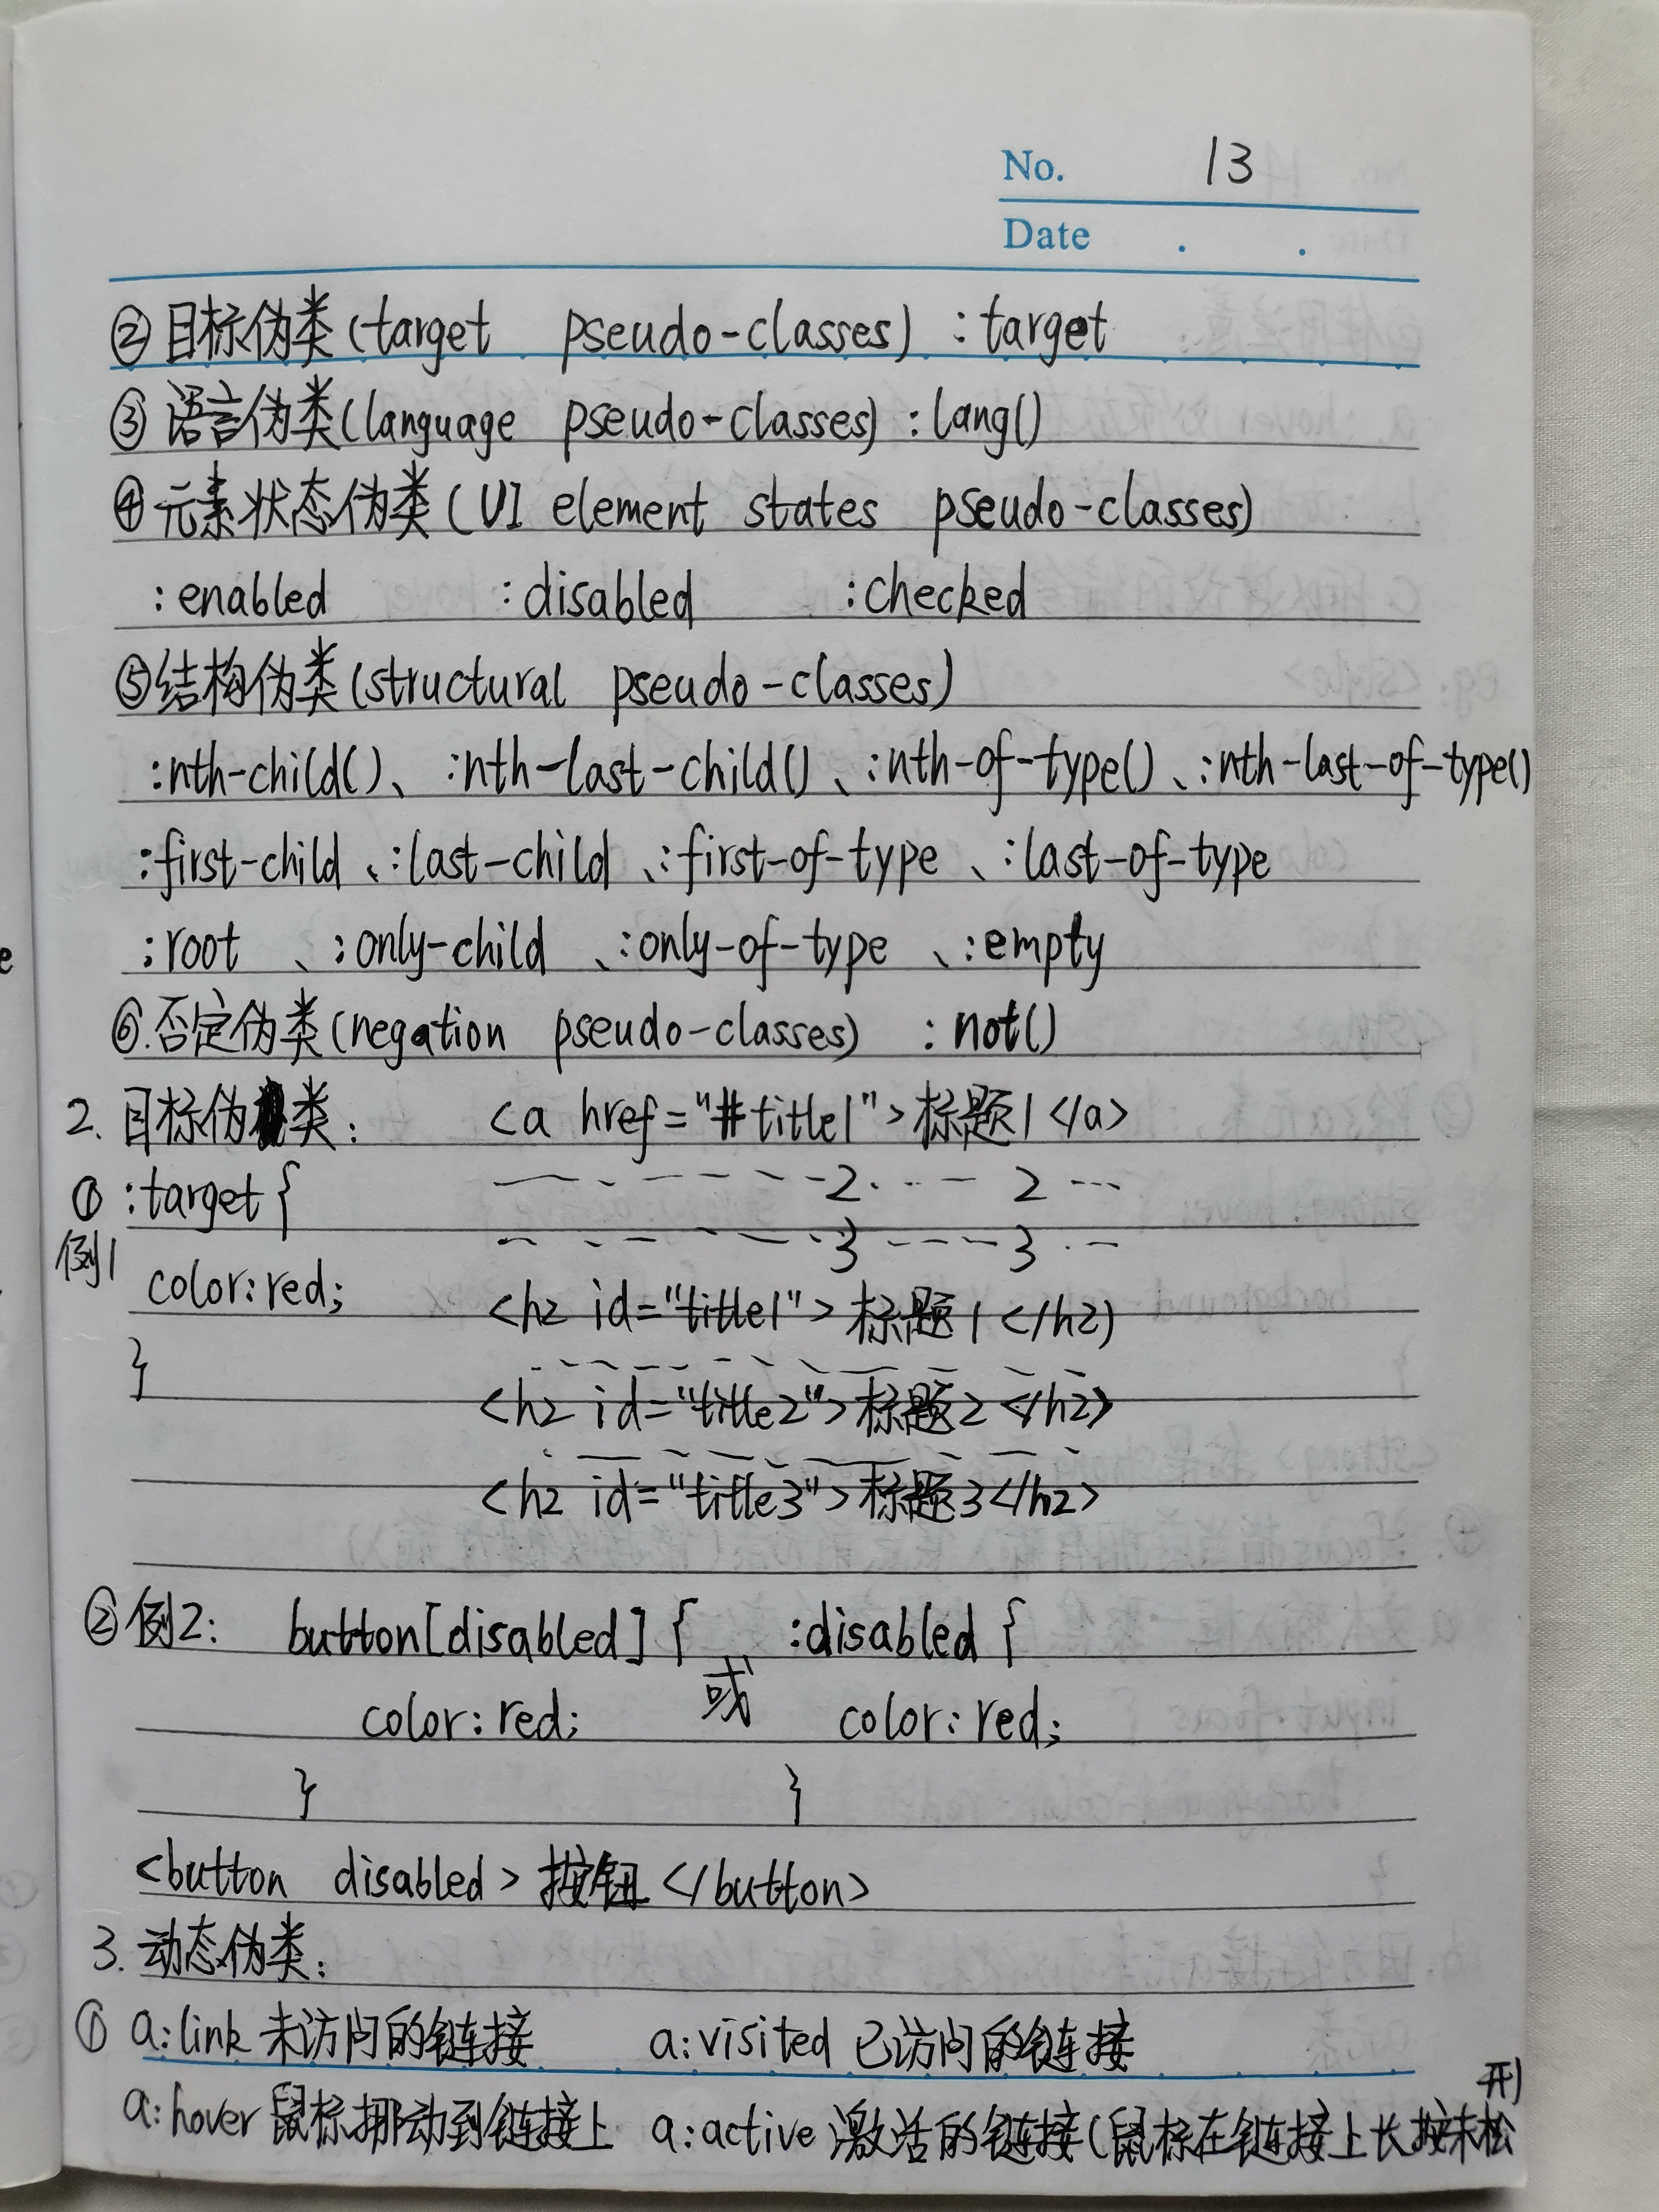 No. 13
Date . .
②目标伪类(target pseudo-classes) :target
③语言伪类(language pseudo-classes) :lang()
④元素状态伪类(UI element states pseudo-classes)
:enabled :disabled :checked
⑤结构伪类(structural pseudo-classes)
:nth-child()、:nth-last-child()、:nth-of-type()、:nth-last-of-type()
:first-child、:last-child、:first-of-type、:last-of-type
:root、:only-child、:only-of-type、:empty
⑥.否定伪类(negation pseudo-classes) :not()
2.目标伪类: <a href="#title1">标题1</a>
① :target{ 2 2
例1 3 3
color:red; <h2 id="title1">标题1</h2)
} <h2 id="title2">标题2</h2>
<h2 id="title3">标题3</h2>
②例2: button[disabled]{ 或 :disabled{
color:red; color:red;
} }
<button disabled>按钮</button>
3.动态伪类:
① a:link 未访问的链接 a:visited 已访问的链接
a:hover 鼠标挪动到链接上 a:active 激活的链接(鼠标在链接上长按未松开)